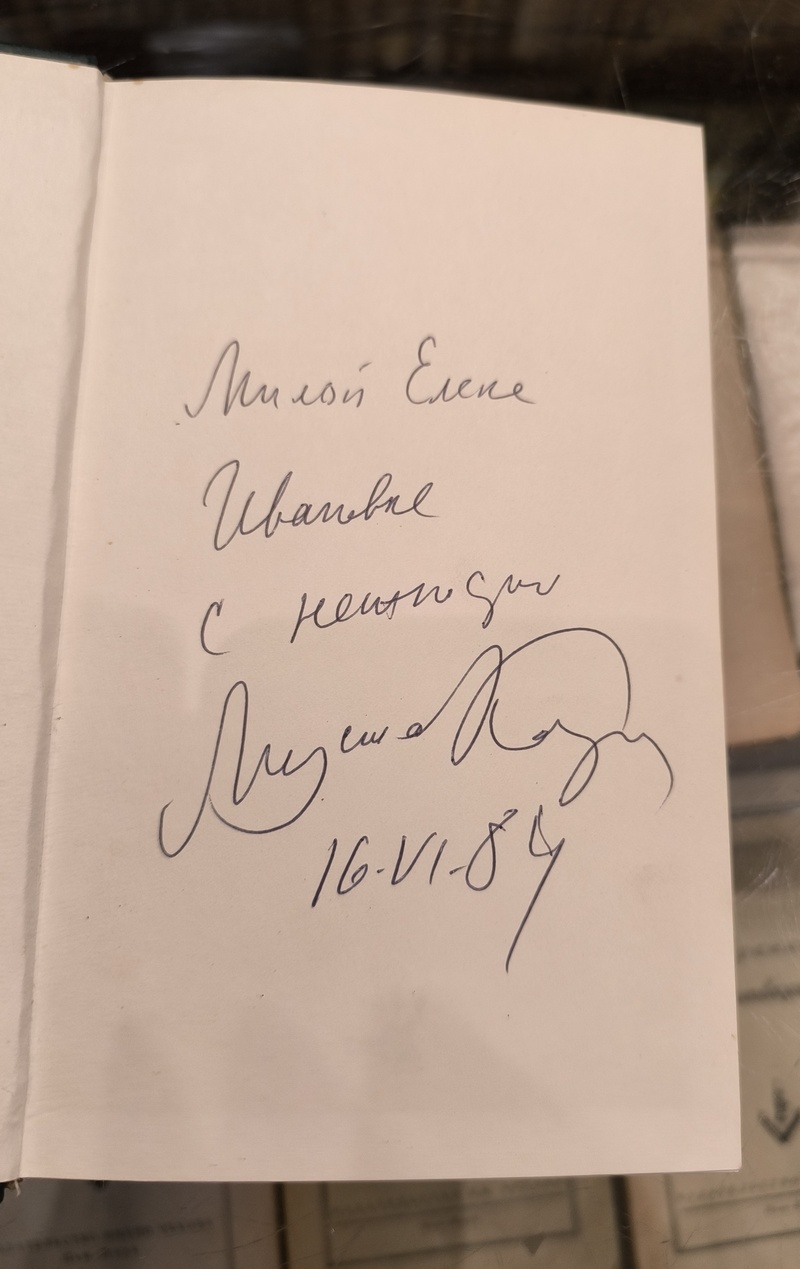 Милой Елене
Ивановне
с нежностью
Мустай Карим
16-VI-84